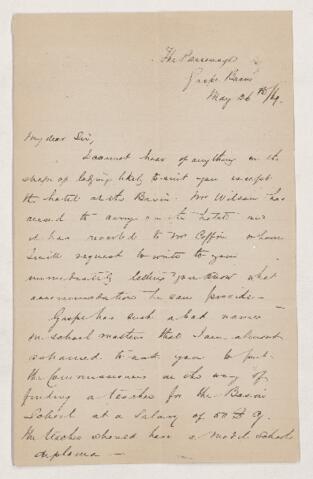 The Parsonage
Gaspé Basin
May 26th /89.
My dear Sir,
I cannot hear of anything in the
shape of lodging likely to suit you except
the hotel at the Basin. Mr Wilson has
ceased to carry on the hotel and
it has reverted to Mr Coffin whom
I will request to write to you
immediately letting you know what
accommodation he can provide —
Gaspé has such a bad name
in school matters that I am almost
ashamed to ask you to put
the Commissioners in the way of
finding a teacher for the Basin
School at a salary of
the teacher should have a model school
diploma —